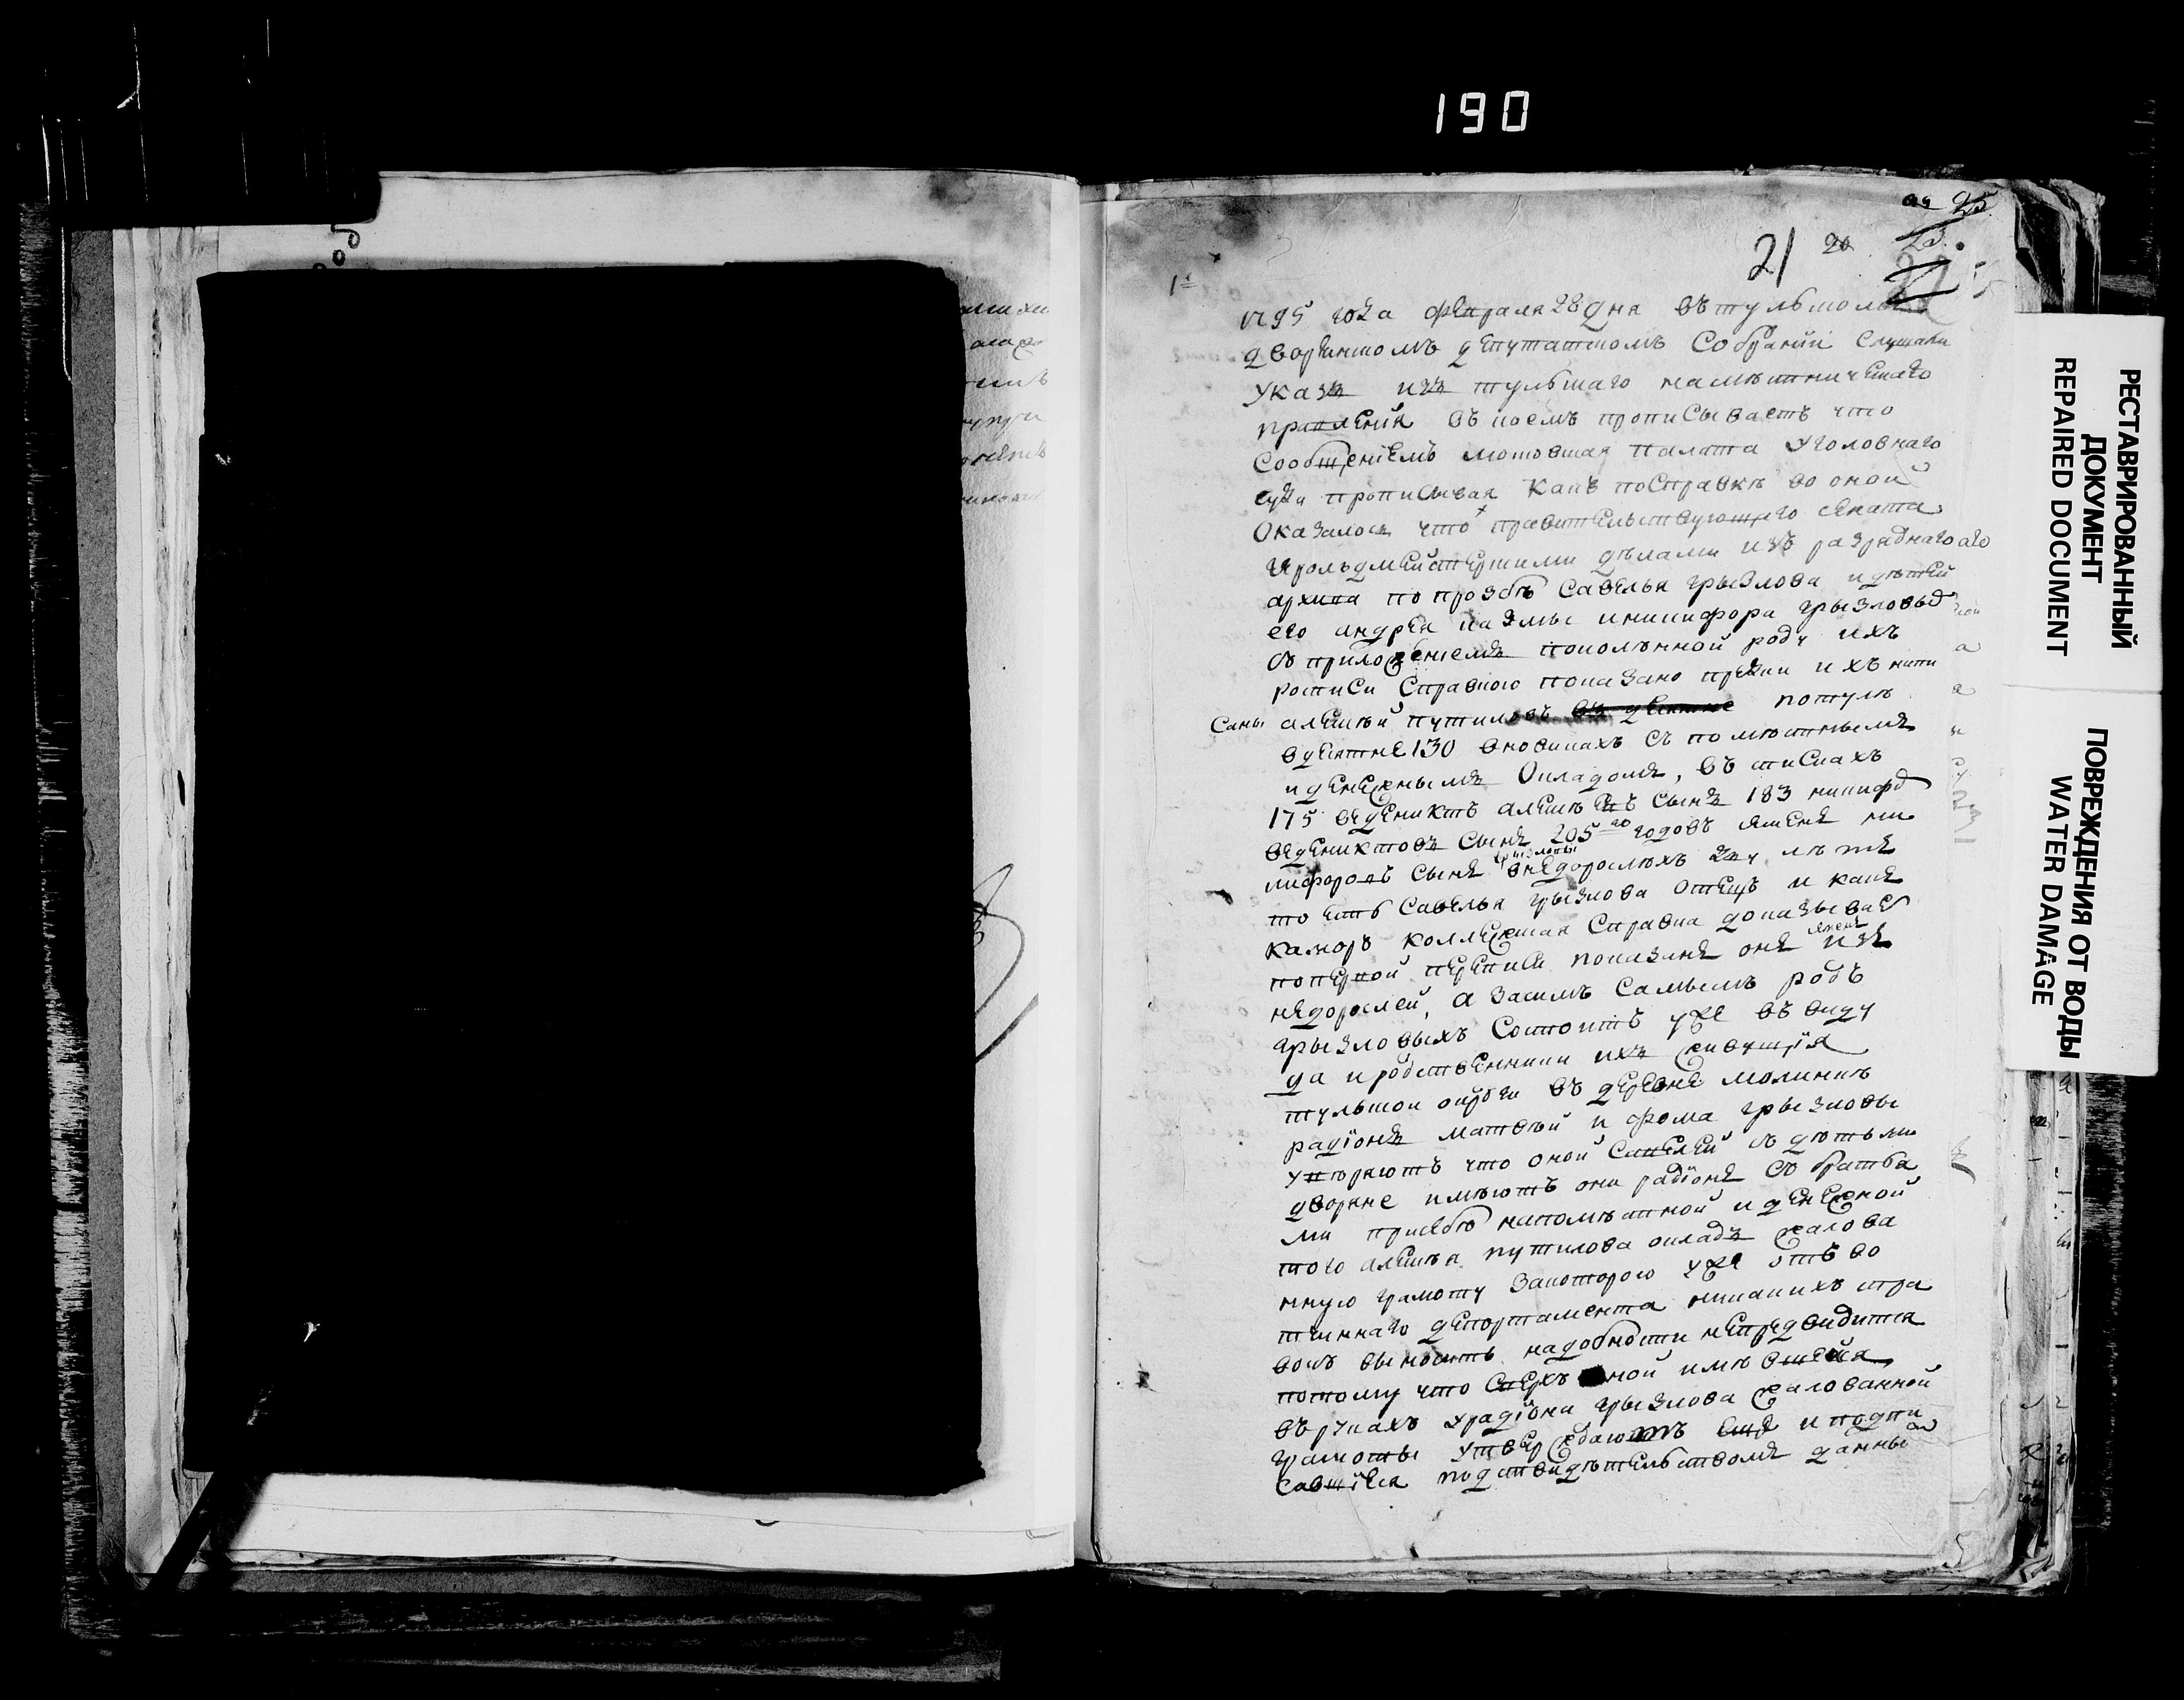 190
21 20
25
1795 года февраля 28 дня въ тульском
дворянскомъ депутатскомъ Собрании слушали
Указъ изъ тульскаго наместническаго
правления въ коемъ прописываетъ что
Сообщениемъ московская палата уголовнаго
суда прописывая какъ по Справкѣ во оной
Оказалось что правительствующаго сената
Герольдмейстерскими дѣлами изъ разряднаго
архива по прозбѣ Савелья грызлова и дѣтей
его андрея казмы и никифора грызловых
съ приложениемъ поколѣнной роду ихъ
росписи Справкою показано предки ихъ
алексѣй путиловъ по тулѣ
Саны
в десятне 130 в новикахъ съ помѣстнымъ
и денежнымъ Окладомъ, въ списках
175 веденихтъ алексѣевъ Сынъ 183 никифор
веденихтовъ Сынъ 205го годовъ семенъ ни
кифоровъ Сынъ грызловы в недорослѣхъ
то есть Савелья грызлова отецъ и какъ
камор коллежская Справка доказывает
по первой переписи показанъ онъ семенъ изъ
недорослей, а засимъ Самымъ родъ
грызловыхъ Состоитъ уже въ виду
да и родственники ихъ живущия
тульской округи въ деревне
радионъ матвѣй и фома грызловы
уверяютъ что оной Савелей съ дѣтьми
дворяне имѣютъ они радионъ съ братья
ми при себѣ на помѣстной и денежной
того алексѣя путилова окладъ жалова
нную грамоту за которого уже отъ во
тчиннаго депортамента никаких спра
вокъ выносить надобности не предвидится
потому что Сверхъ оной имѣвшейся
въ руках у радиона грызлова жалованной
грамоты утверждаютъ еще и подпи
Савшиеся под свидѣтельствомъ данны
РЕСТАВРИРОВАННЫЙ
ДОКУМЕНТ
REPAIRED DOCUMENT
ПОВРЕЖДЕНИЯ ОТ ВОДЫ
WATER DAMAGE